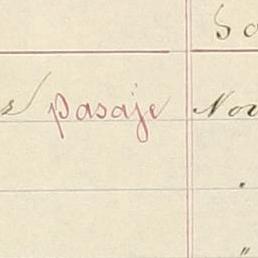 pasaje Nov
"